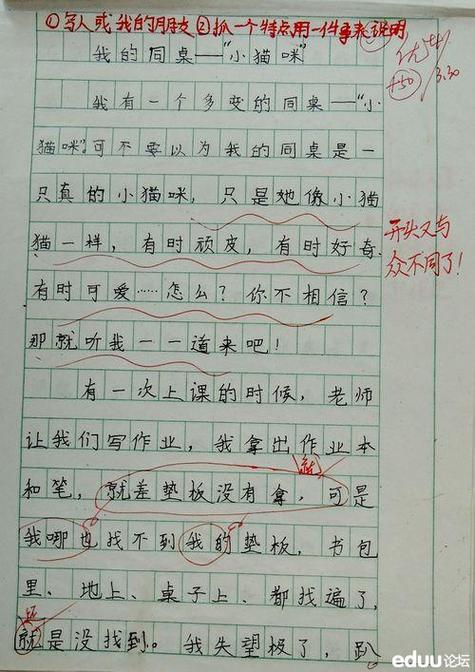 ①写人或我的朋友②抓一个特点用一件事来说明
我的同桌——“小猫咪”
优
3.30
我有一个多变的同桌——“小
猫咪”可不要以为我的同桌是一
只真的小猫咪，只是她像小猫
猫一样，有时顽皮，有时好奇，
开头又与
众不同了！
有时可爱……怎么？你不相信？
那就听我一一道来吧！
有一次上课的时候，老师
让我们写作业，我拿出作业本
就
和笔，就差垫板没有拿，可是
我哪也找不到我的垫板，书包
里、地上、桌子上、都找遍了，
就是没找到。我失望极了，趴
eduu论坛